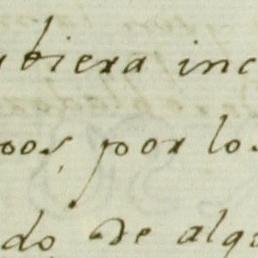 ubiera inc
pos, por los
do de alg